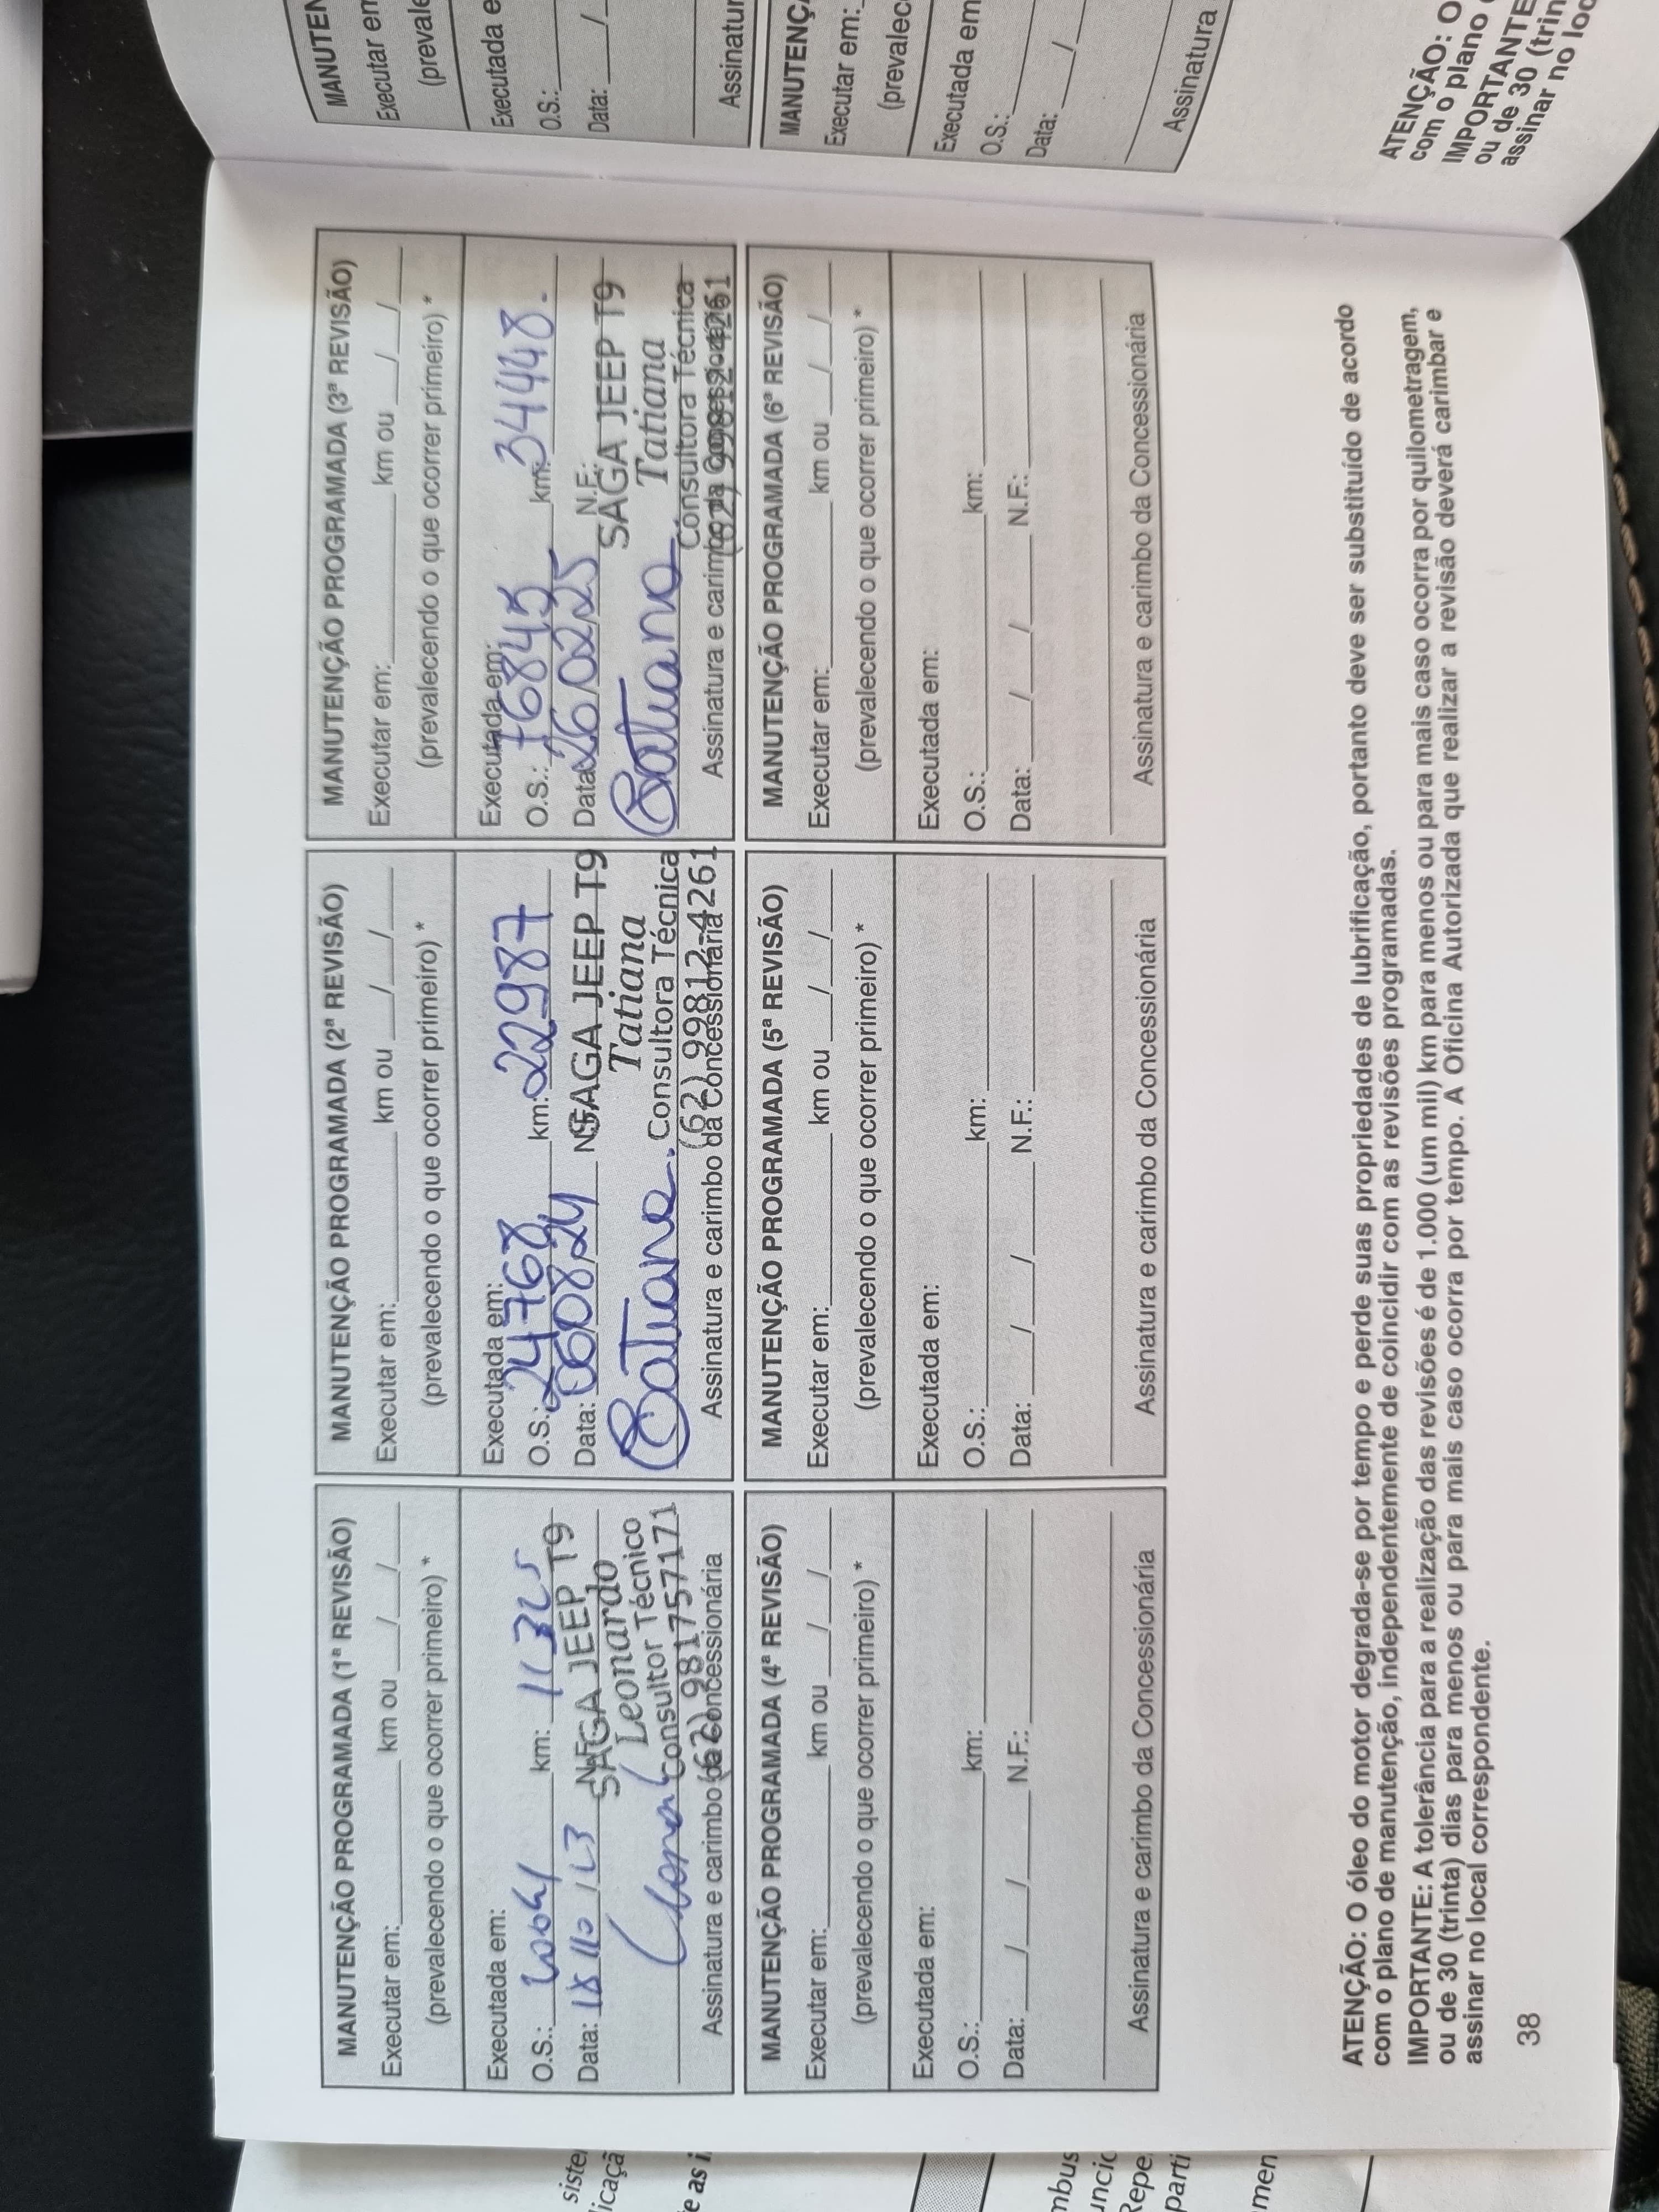 MANUTENÇÃO PROGRAMADA (1ª REVISÃO)
Executar em:________ km ou ___/___/___
(prevalecendo o que ocorrer primeiro) *
Executada em:
O.S.: km:
Data: 18/10/23 N.F.:
SAGA JEEP T9
Leonardo
Consultor Técnico
(62) 981757171
Assinatura e carimbo da Concessionária
MANUTENÇÃO PROGRAMADA (2ª REVISÃO)
Executar em:________ km ou ___/___/___
(prevalecendo o que ocorrer primeiro) *
Executada em:
O.S.: 24768 km: 22987
Data: 06/08/24 N.F.:
SAGA JEEP T9
Tatiana
Tatiana
Consultora Técnica
(62) 99812-4261
Assinatura e carimbo da Concessionária
MANUTENÇÃO PROGRAMADA (3ª REVISÃO)
Executar em:________ km ou ___/___/___
(prevalecendo o que ocorrer primeiro) *
Executada em:
O.S.: 76845 km: 34448.
Data: 26/02/25 N.F.:
SAGA JEEP T9
Tatiana
Tatiana
Consultora Técnica
(62) 99812-4261
Assinatura e carimbo da Concessionária
MANUTENÇÃO PROGRAMADA (4ª REVISÃO)
Executar em:________ km ou ___/___/___
(prevalecendo o que ocorrer primeiro) *
Executada em:
O.S.:________km:________
Data:___/___/___ N.F.:________
Assinatura e carimbo da Concessionária
MANUTENÇÃO PROGRAMADA (5ª REVISÃO)
Executar em:________ km ou ___/___/___
(prevalecendo o que ocorrer primeiro) *
Executada em:
O.S.:________km:________
Data:___/___/___ N.F.:________
Assinatura e carimbo da Concessionária
MANUTENÇÃO PROGRAMADA (6ª REVISÃO)
Executar em:________ km ou ___/___/___
(prevalecendo o que ocorrer primeiro) *
Executada em:
O.S.:________km:________
Data:___/___/___ N.F.:________
Assinatura e carimbo da Concessionária
ATENÇÃO: O óleo do motor degrada-se por tempo e perde suas propriedades de lubrificação, portanto deve ser substituído de acordo
com o plano de manutenção, independentemente de coincidir com as revisões programadas.
IMPORTANTE: A tolerância para a realização das revisões é de 1.000 (um mil) km para menos ou para mais caso ocorra por quilometragem,
ou de 30 (trinta) dias para menos ou para mais caso ocorra por tempo. A Oficina Autorizada que realizar a revisão deverá carimbar e
assinar no local correspondente.
38
MANUTEN
Executar em
(prevale
Executada e
O.S.:
Data: ___/
Assinatur
MANUTENÇ
Executar em:
(prevalec
Executada em
O.S.:
Data: ___/
Assinatura
ATENÇÃO: O
com o plano
IMPORTANTE
ou de 30 (trin
assinar no loc
siste
icaçã
e as i
mbus
uncic
Repe
parti
men